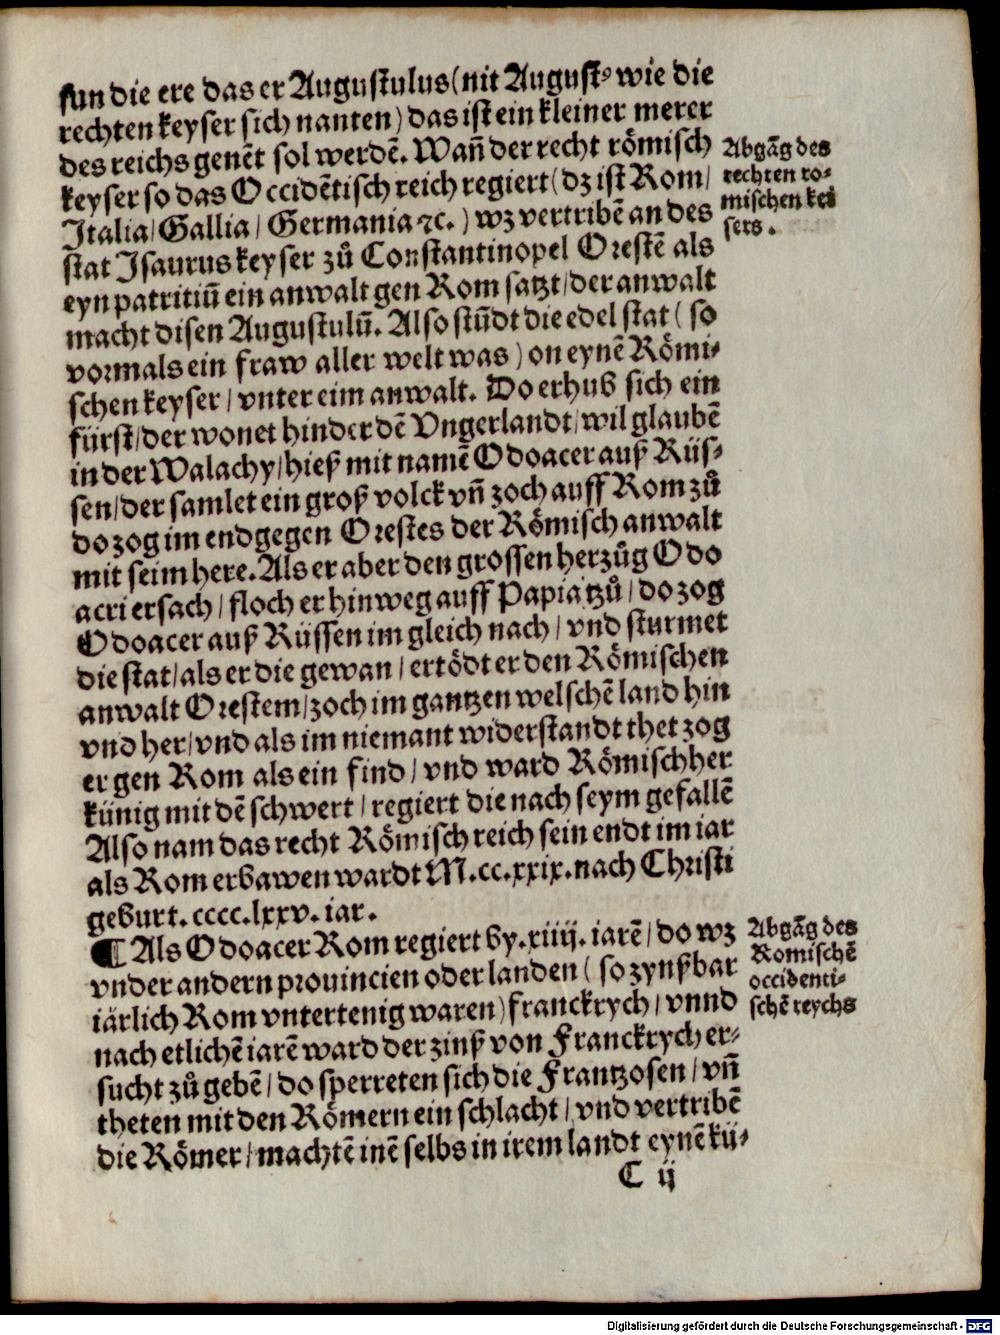 fun die ere das er Augustulus (nit Augustꝰ wie die
rechten keyser sich nanten) das ist ein kleiner merer
des reichs genēt sol werdē. Wañ der recht römisch
keyser so das Occidētisch reich regiert (dz ist Rom/
Italia/ Gallia/ Germania ⁊c.) wz vertribē an des
stat Isaurus keyser zů Constantinopel Orestē als
eyn patritiū ein anwalt gen Rom satzt/ der anwalt
macht disen Augustulū. Also stūdt die edel stat (so
vormals ein fraw aller welt was) on eynē Römi-
schen keyser/ vnter eim anwalt. Do erhub sich ein
fürst/ der wonet hinder dē Vngerlandt/ wil glaubē
in der Walachy/ hieß mit namē Odoacer auß Rüs-
sen/ der samlet ein groß volck vñ zoch auff Rom zů
do zog im endgegen Orestes der Römisch anwalt
mit seim here. Als er aber den grossen herzůg Odo
acri ersach/ floch er hinweg auff Papia tzů/ do zog
Odoacer auß Rüssen im gleich nach/ vnd sturmet
die stat/ als er die gewan/ ertödt er den Römischen
anwalt Orestem/ zoch im gantzen welschē land hin
vnd her/ vnd als im niemant widerstandt thet zog
er gen Rom als ein find/ vnd ward Römischher
künig mit dē schwert/ regiert die nach seym gefallē
Also nam das recht Römisch reich sein endt im iar
als Rom erbawen wardt M.cc.xxix. nach Christi
geburt. cccc.lxxv. iar.
¶ Als Odoacer Rom regiert by. xiiij. iarē/ do wz
vnder andern prouincien oder landen (so zynßbar
iärlich Rom vntertenig waren) franckrych/ vnnd
nach etlichē iarē ward der zinß von Franckrych er-
sucht zů gebē/ do sperreten sich die Frantzosen/ vñ
theten mit den Römern ein schlacht/ vnd vertribē
die Römer/ machtē inē selbs in irem landt eynē kü-
C ij
Abgāg des
rechten ro-
mischen kei
sers.
Abgāg des
Romischē
occidenti-
schē reychs
Digitalisierung gefördert durch die Deutsche Forschungsgemeinschaft - DFG